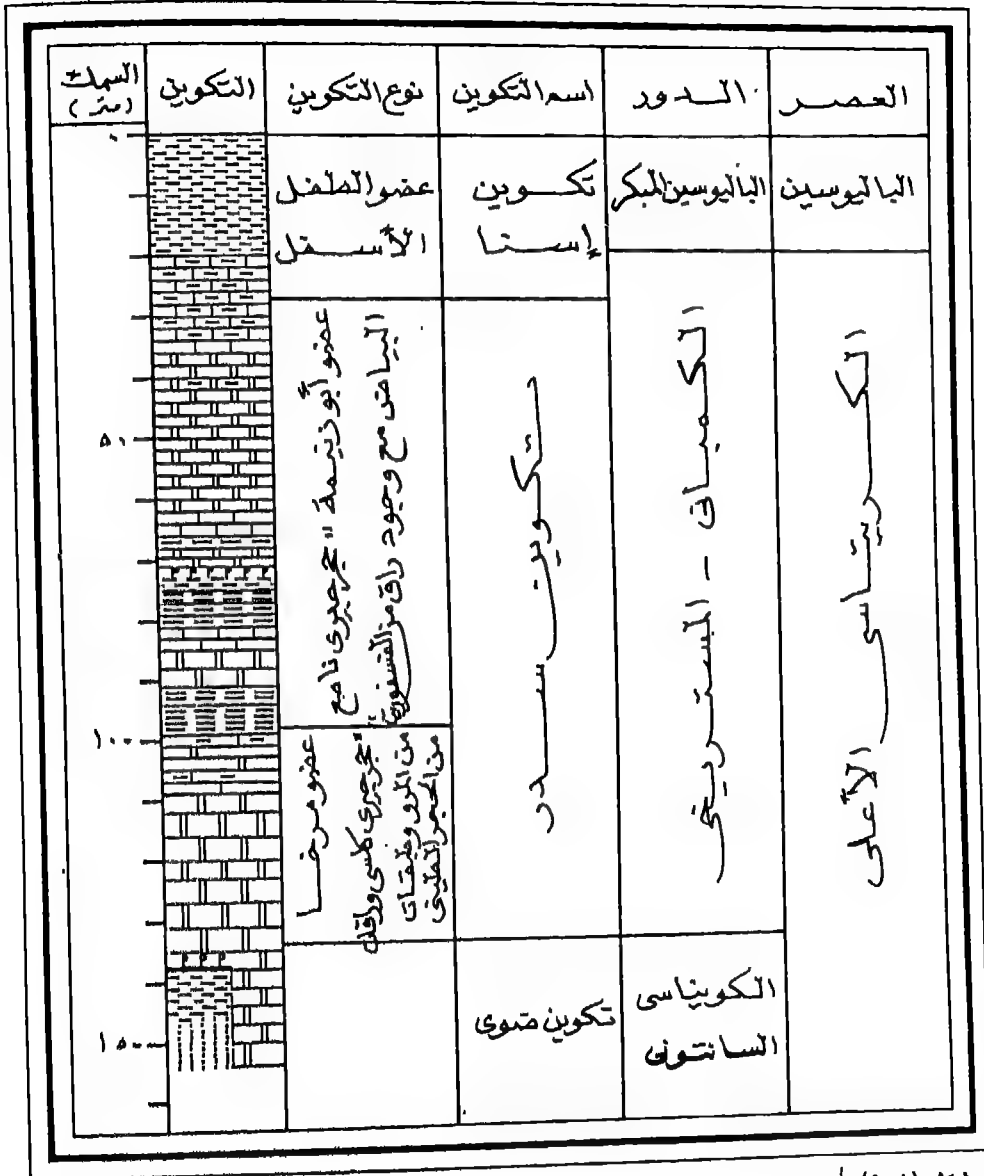 العصر
الدور
اسم التكوين
نوع التكوين
التكوين
السمك
(متر)
الباليوسين
الباليوسين المبكر
تكوين
إسنا
عضو الطفل
الأسفل
الكريتاسى الأعلى
الكمبانى - المستريخى
تكوين سدر
عضو أبو زنيمة " حجر جيرى ناصع
البياض مع وجود راق من الفسفوريت "
عضو مرخا
" حجر جيرى كلسى وراقات
من المرو وطبقات
من الحجر الطينى
الكونياسى
السانتونى
تكوين ضوى
٠
٥٠
١٠٠
١٥٠